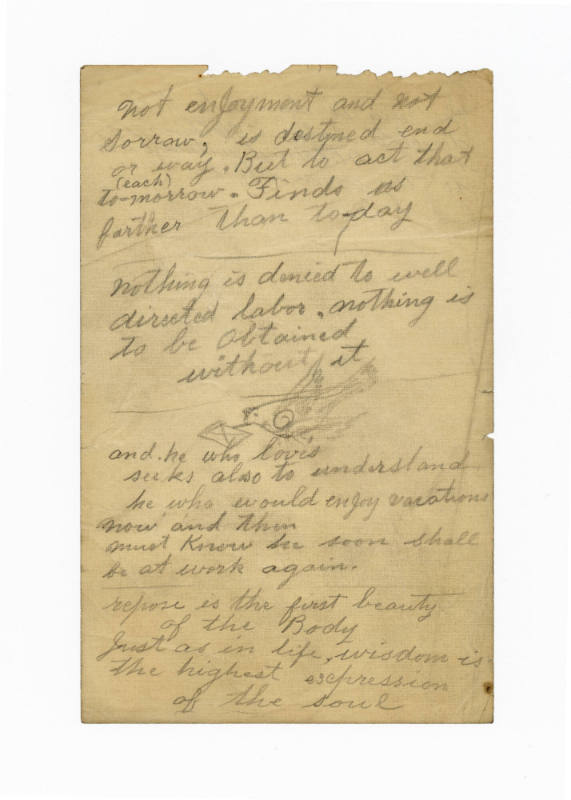 not enjoyment and not
sorrow, is destined end
or way. But to act that
(each)
to-morrow. Finds us
farther than to-day
nothing is denied to well
directed labor. nothing is
to be obtained
without it
and he who loves
seeks also to understand
he who would enjoy vacations
now and then
must know he soon shall
be at work again.
repose is the first beauty
of the Body
Just as in life, wisdom is
the highest expression
of the soul